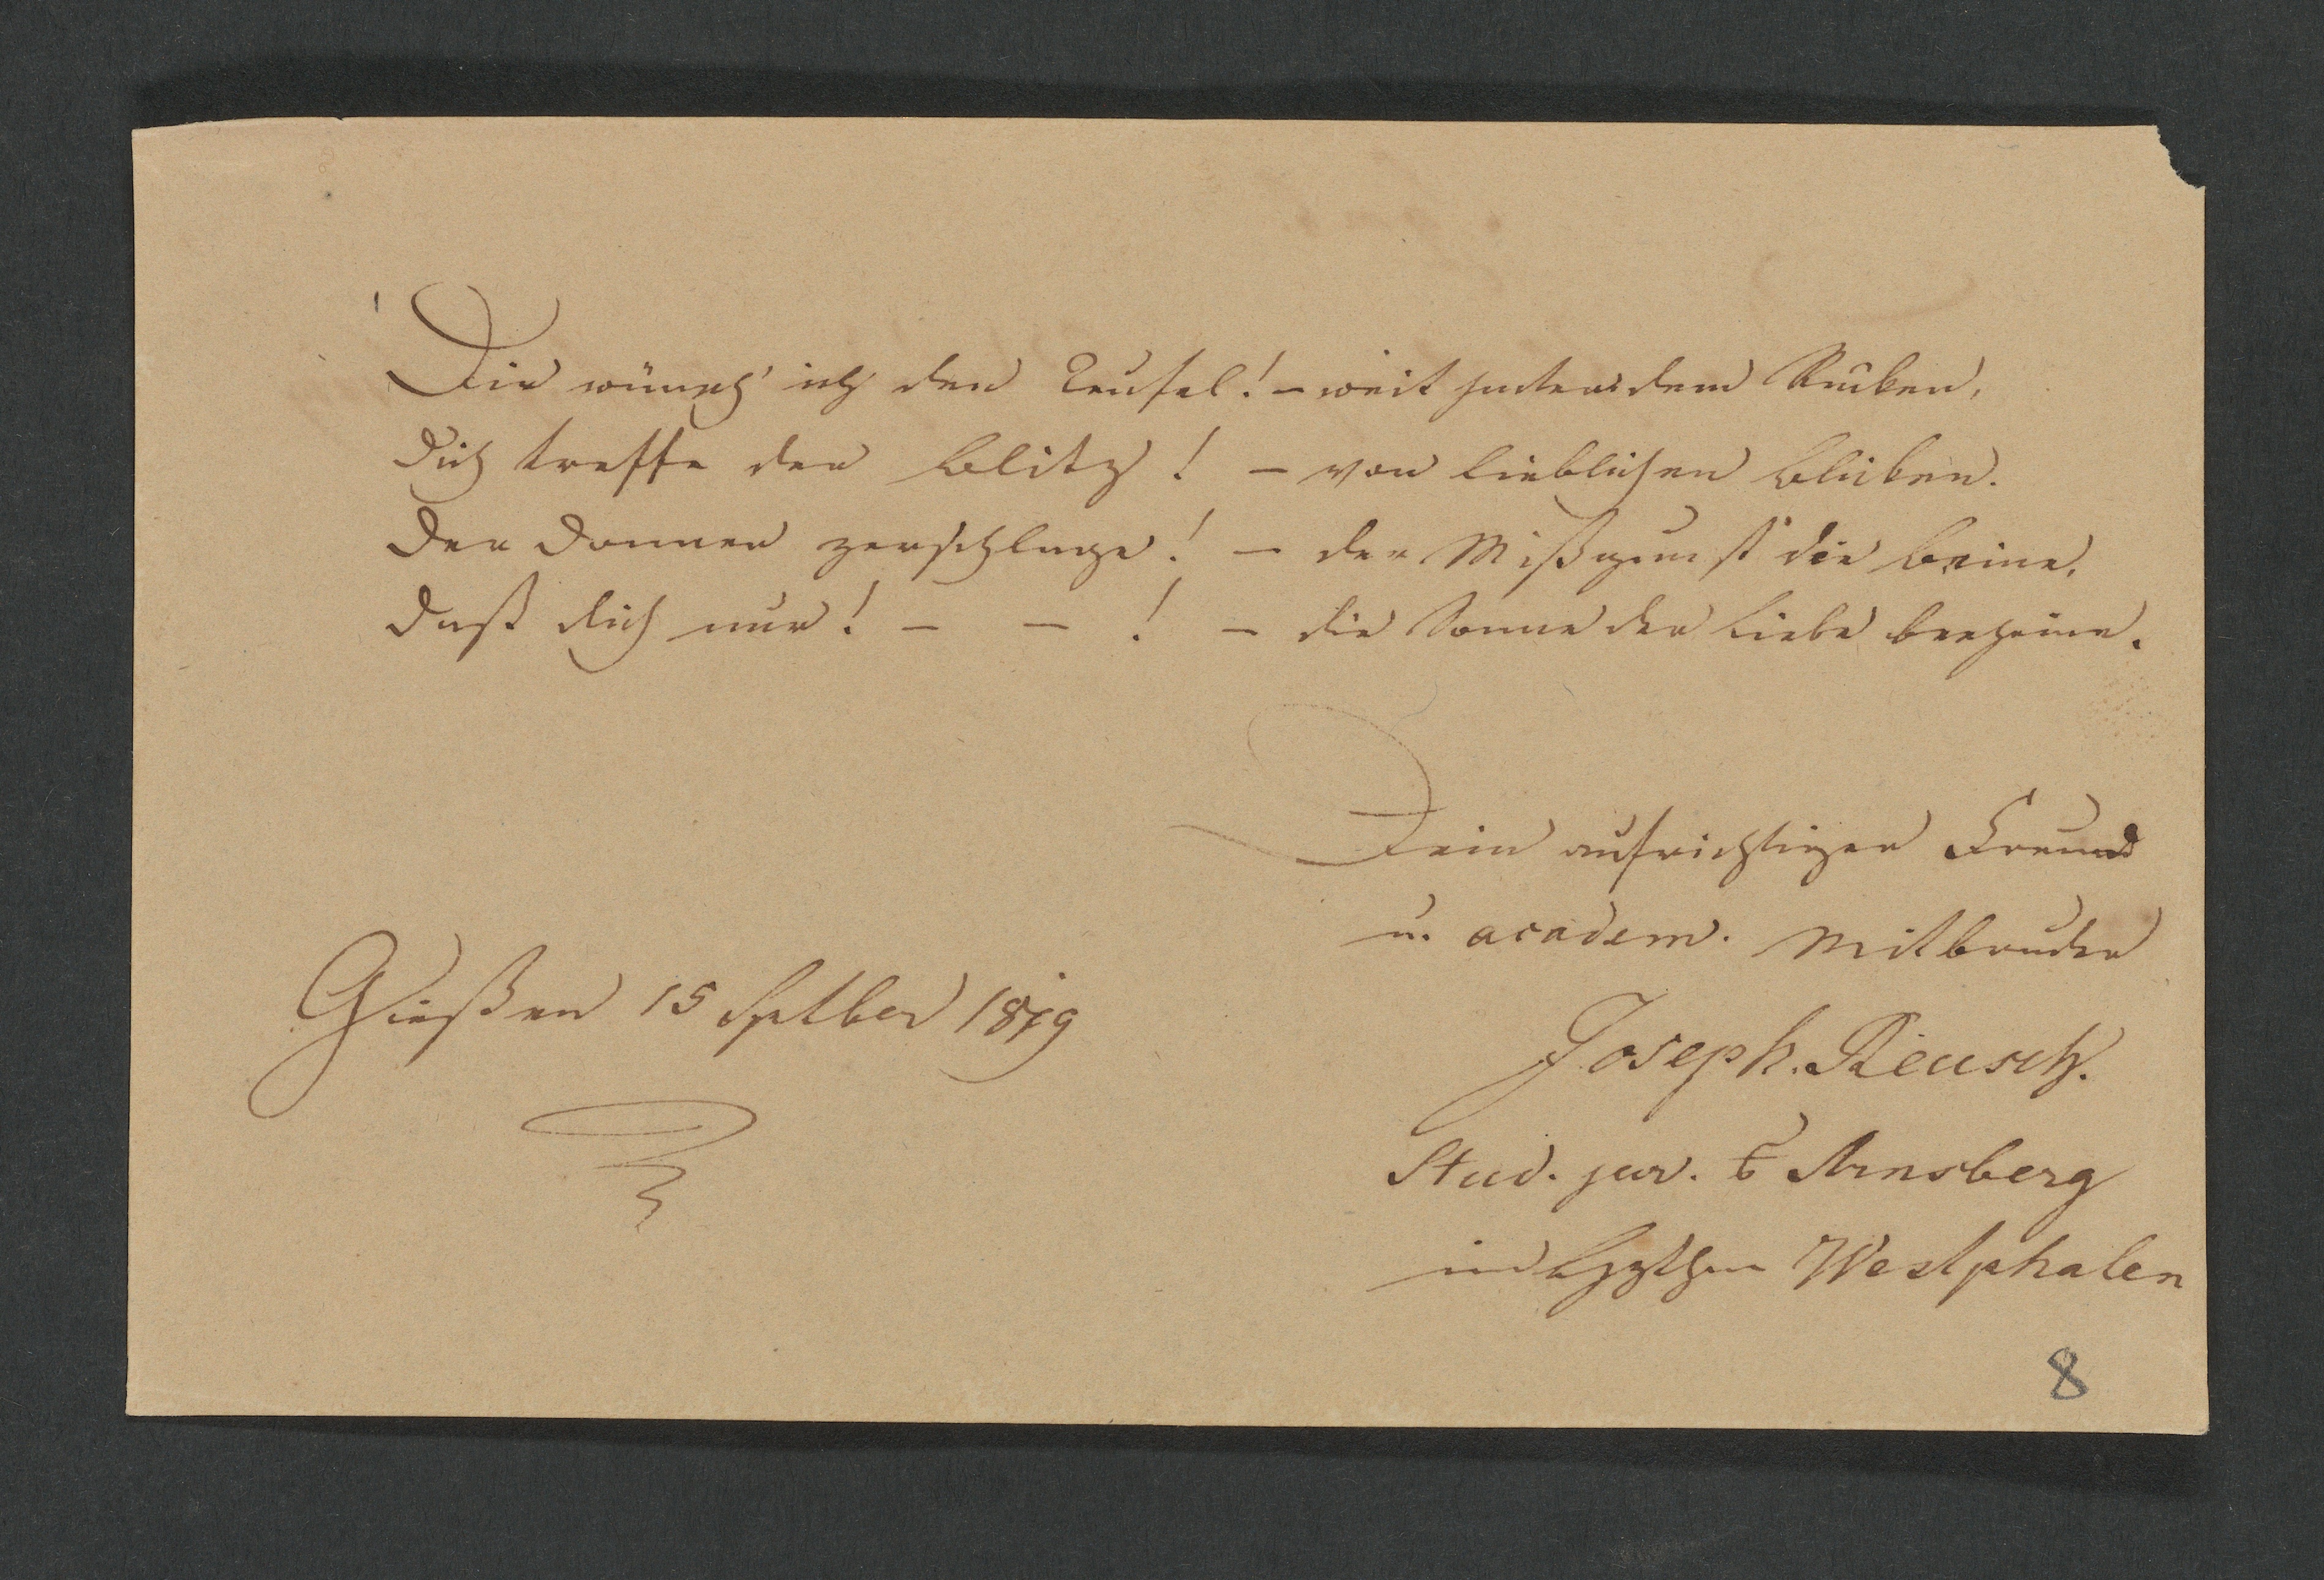 Dir wünsch' ich den Teufel! – weit hinter dem Rücken,
Dich treffe der Blitz! – von lieblichen Blicken.
Der Donner zerschlage! – der Mißgunst die Beine,
Daß dich nur! – – ! – die Sonne der Liebe bescheine.
Dein aufrichtiger Freund
u. academ. Mitbruder
Gießen 15 Septber 1819
Joseph. Reusch.
Stud. jur. Arnsberg
im Westphalen
8